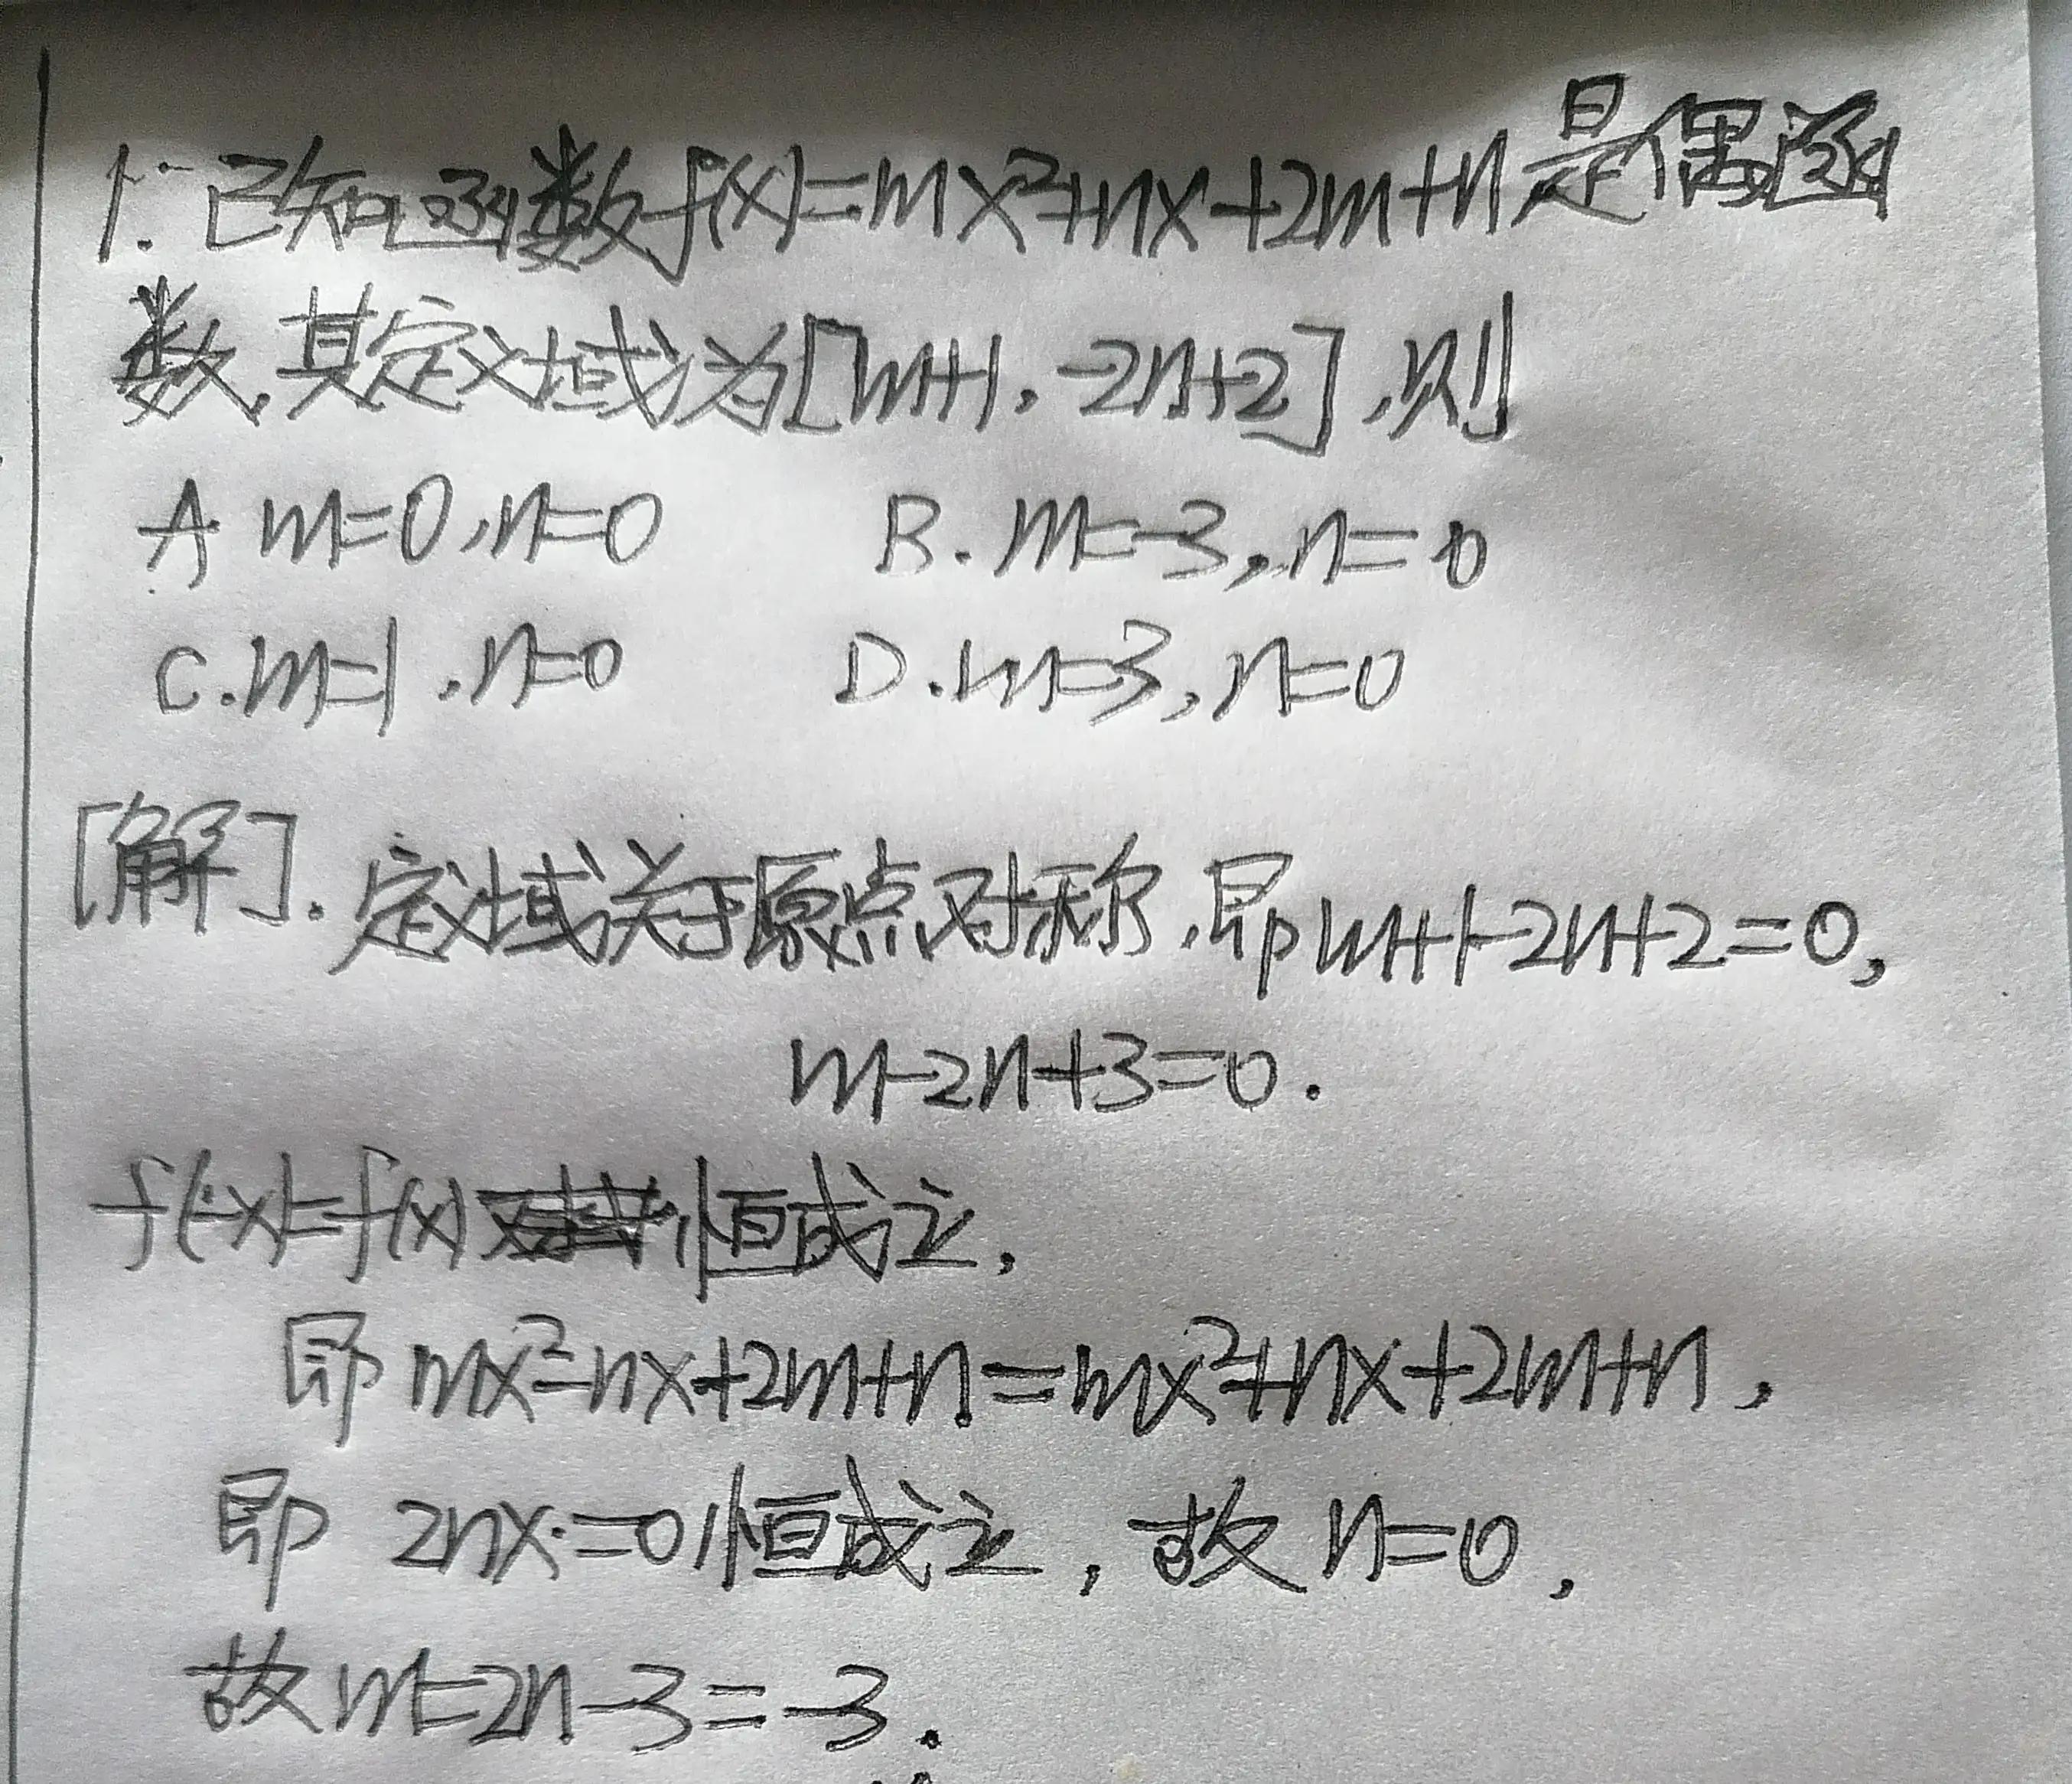 1. 已知函数f(x)=mx²+nx+2m+n是偶函
数,其定义域为[m+1,-2n+2],则
A. m=0,n=0 B. m=-3,n=0
C. m=1,n=0 D. m=3,n=0
[解].定义域关于原点对称,即m+1-2n+2=0,
m-2n+3=0.
f(-x)=f(x)恒成立,
即 mx²-nx+2m+n=mx²+nx+2m+n,
即 2nx=0恒成立,故 n=0,
故m=2n-3=-3.